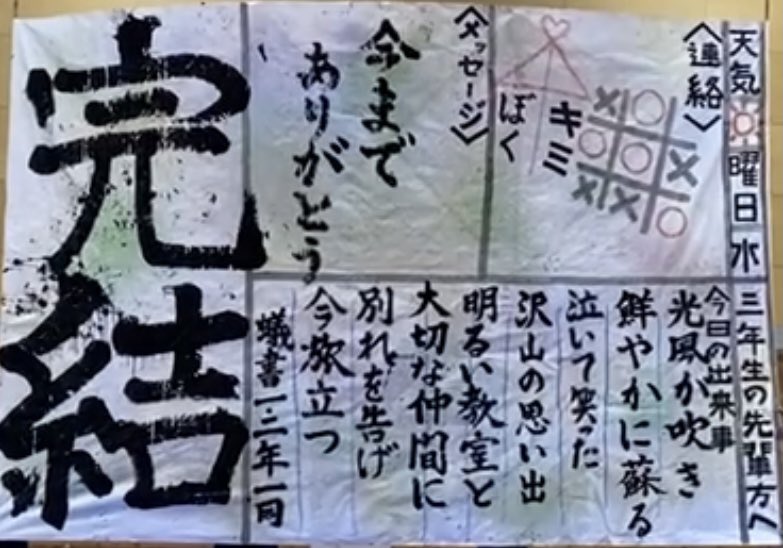 天気 曜日 水
三年生の先輩方へ
〈連絡〉
キミ
ぼく
〈メッセージ〉
今まで
ありがとう
今日の出来事
光風が吹き
鮮やかに蘇る
泣いて笑った
沢山の思い出
明るい教室と
大切な仲間に
別れを告げ
今旅立つ
蟻書一・二年一同
完結